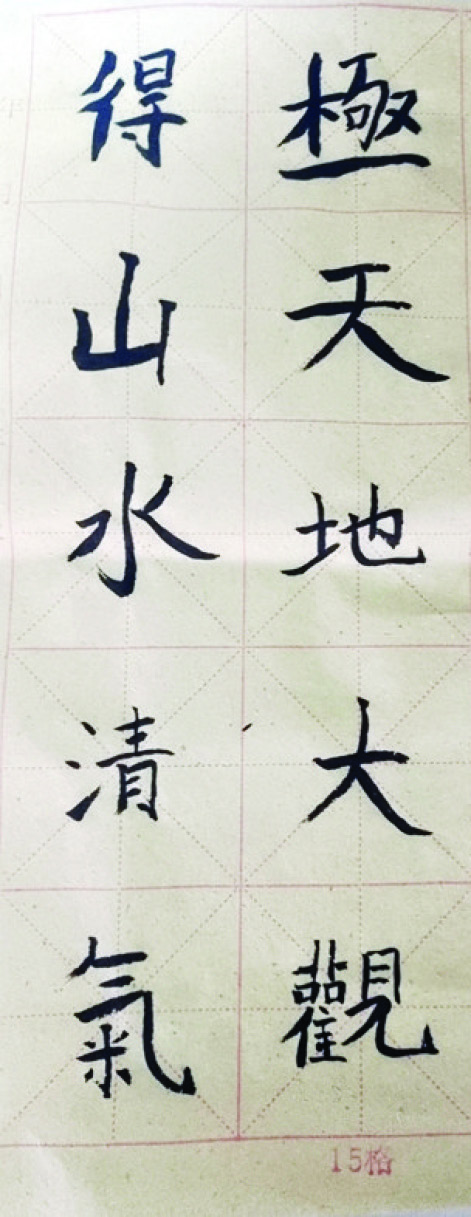 極天地大觀
得山水清氣
15格